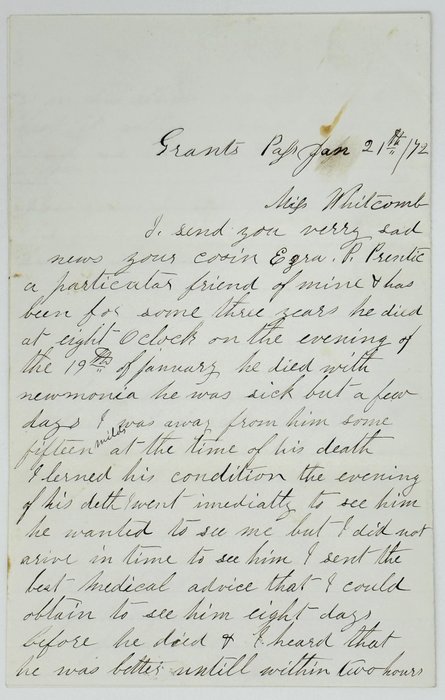 Grants Pass Jan 21th /72
Miss Whitcomb
I. send you verry sad
news your cosin Ezra. P. Prentic
a particular friend of mine & has
been for some three years he died
at eight Oclock on the evening of
the 19th of january he died with
newmonia he was sick but a few
days I was away from him some
fifteen miles at the time of his death
I lerned his condition the evening
of his deth I went imediatly to see him
he wanted to see me but I did not
arive in time to see him I sent the
best medical advice that I could
obtain to see him eight days
before he died & I heard that
he was better untill within two hours